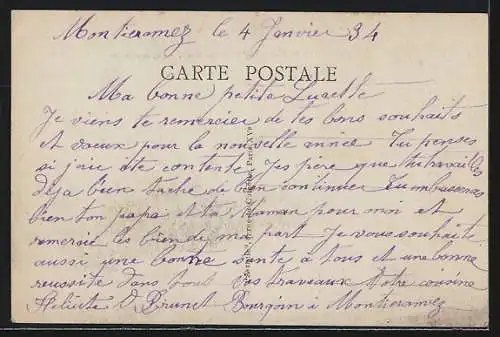 Montieramez le 4 Janvier 34
CARTE POSTALE
Ma bonne petite Lucette
Je viens te remercier de tes bons souhaits
et vœux pour la nouvelle année Tu penses
si j'aie ete contente J'espère que tu travailles
déja bien tache de bien continuer Tu embrasseras
bien ton papa et ta Maman pour moi et
remercie les bien de ma part Je vous souhaite
aussi une bonne sante à tous et une bonne
reussite dans tout vos traveaux Votre cousine
Felicité Brunet Bourgoin à Montieramez